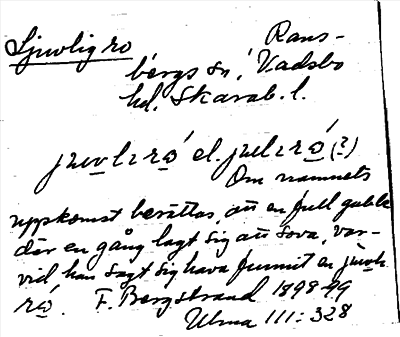 Ljuvlig ro
Rans-
bergs sn, Vadsbo
hd, Skarab. l.
juvlɩró el. julɩró (?)
Om namnets
uppkomst berättas, att en full gubbe
där en gång lagt sig att sova, var-
vid han sagt sig hava funnit en juvlɩ-
ró. F. Bergstrand 1898-99
Ulma 111:328